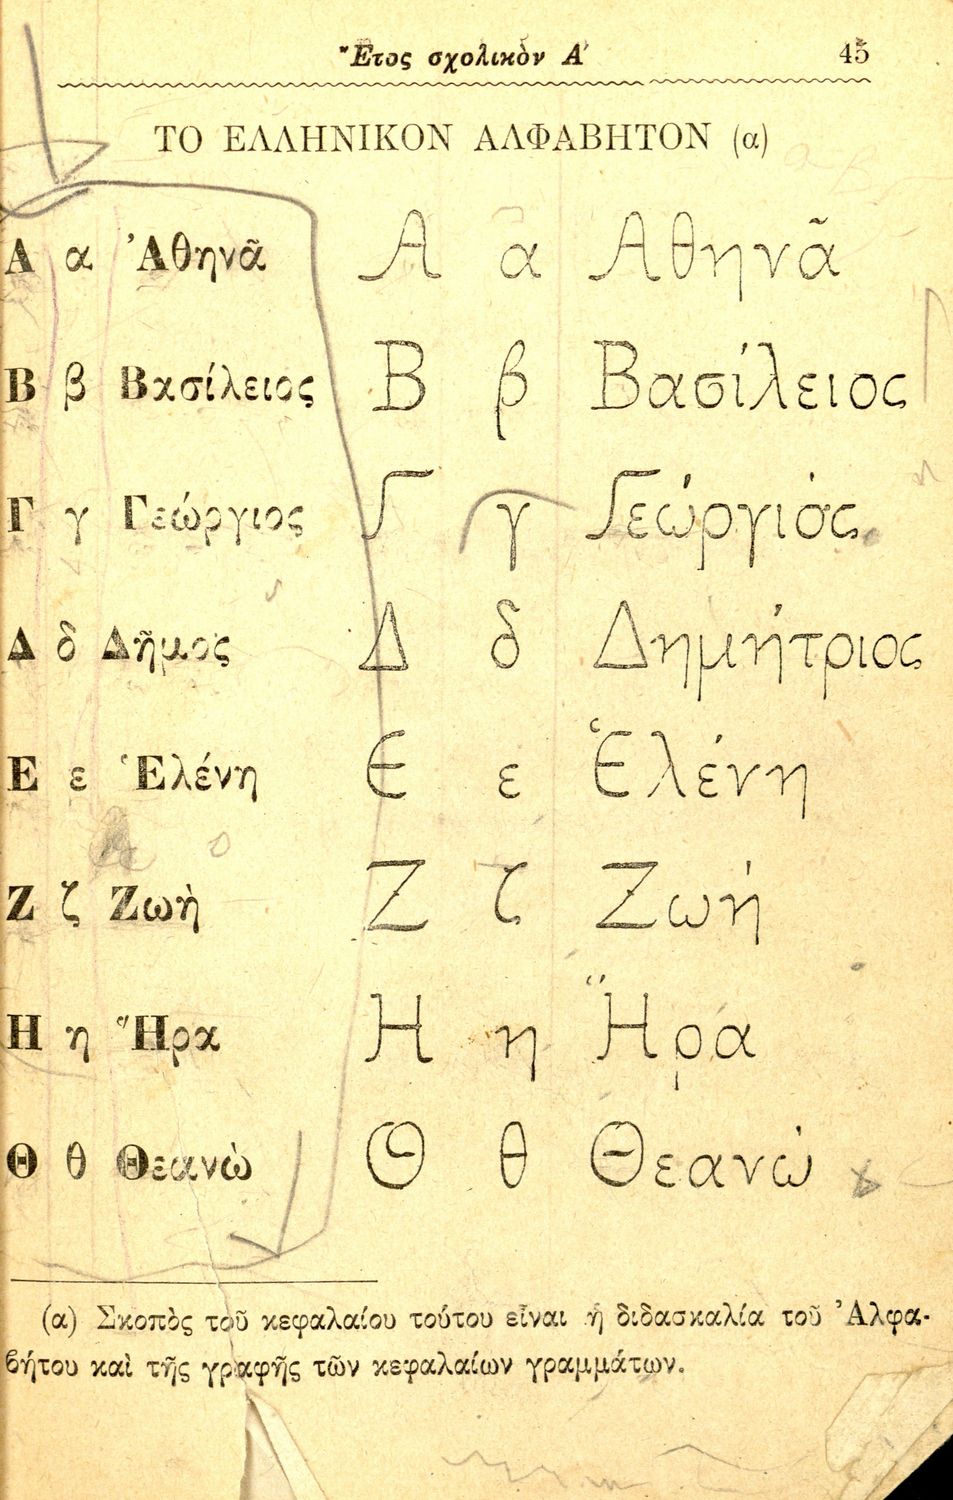 Ἔτος σχολικὸν Α΄ 45
ΤΟ ΕΛΛΗΝΙΚΟΝ ΑΛΦΑΒΗΤΟΝ (α)
Α α Ἀθηνᾶ Α α Αθηνᾶ
Β β Βασίλειος Β β Βασίλειος
Γ γ Γεώργιος Γ γ Γεώργιος
Δ δ Δῆμος Δ δ Δημήτριος
Ε ε Ἑλένη Ε ε Ἑλένη
Ζ ζ Ζωὴ Ζ ζ Ζωή
Η η Ἥρα Η η Ἥρα
Θ θ Θεανὼ Θ θ Θεανώ
(α) Σκοπὸς τοῦ κεφαλαίου τούτου εἶναι ἡ διδασκαλία τοῦ Ἀλφα-
βήτου καὶ τῆς γραφῆς τῶν κεφαλαίων γραμμάτων.